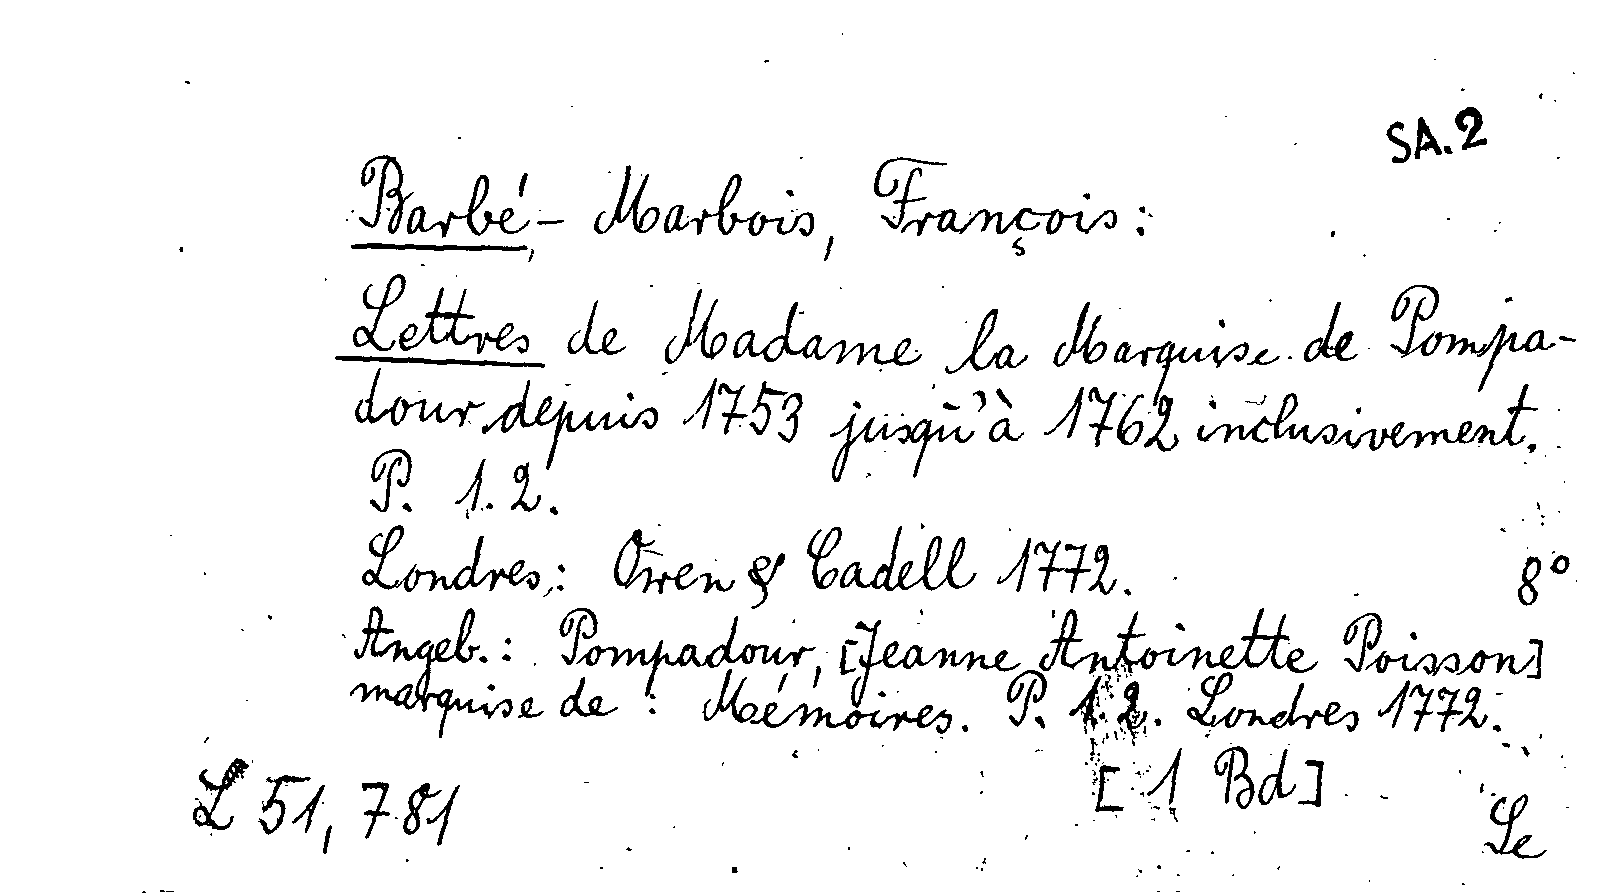 SA.2
Barbé-Marbois, François:
Lettres de Madame la Marquise de Pompa-
dour depuis 1753 jusqu'à 1762 inclusivement.
P. 1.2.
Londres: Owen & Cadell 1772. 8°
Angeb.: Pompadour, [Jeanne Antoinette Poisson]
marquise de: Mémoires. P. 1.2. Londres 1772.
[1 Bd]
L 51, 781
Le